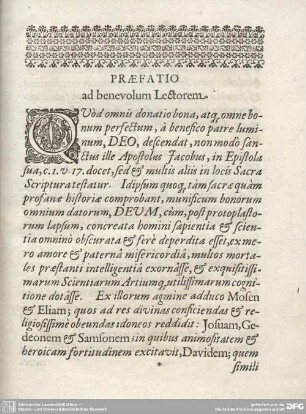 PRÆFATIO
ad benevolum Lectorem.
QVòd omnis donatio bona, atq, omne bonum
perfectum, à benefico patre luminum,
DEO, descendat, non modò sanctus
ille Apostolus Jacobus, in Epistola
sua, c. 1. v. 17. docet, sed & multis aliis in locis Sacra
Scriptura testatur. Idipsum quoq, tam sacræ quàm
profanæ historiæ comprobant, munificum bonorum
omnium datorem, DEUM, cùm, post protoplastorum
lapsum, concreata homini sapientia & scientia
omninò obscurata & ferè deperdita esset, ex mero
amore & paternâ misericordiâ, multos mortales
præstanti intelligentiâ exornâsse, & exquisitissimarum
Scientiarum Artiumq, utilissimarum cognitione
dotâsse. Ex illorum agmine adduco Mosen
& Eliam; quos ad res divinas conficiendas & religiosissimè
obeundas idoneos reddidit: Josuam, Gedeonem
& Samsonem in quibus animositatem &
heroicam fortitudinem excitavit, Davidem; quem
simili